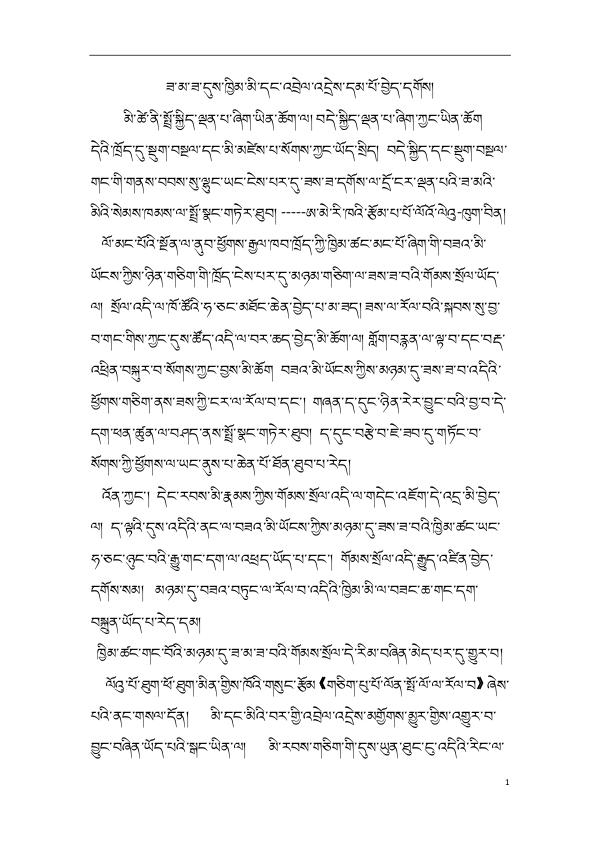 ཟ་མ་ཟ་དུས་ཁྱིམ་མི་དང་འབྲེལ་འདྲེས་དམ་པོ་བྱེད་དགོས།
མི་ཚེ་ནི་སྤྲོ་སྐྱིད་ལྡན་པ་ཞིག་ཡིན་ཆོག་ལ། བདེ་སྐྱིད་ལྡན་པ་ཞིག་ཀྱང་ཡིན་ཆོག
དེའི་ཁྲོད་དུ་སྡུག་བསྔལ་དང་མི་མཛེས་པ་སོགས་ཀྱང་ཡོད་སྲིད། བདེ་སྐྱིད་དང་སྡུག་བསྔལ་
གང་གི་གནས་བབས་སུ་ལྷུང་ཡང་ངེས་པར་དུ་ཟས་ཟ་དགོས་ལ་དྲོ་ངར་ལྡན་པའི་ཟ་མའི་
མིའི་སེམས་ཁམས་ལ་སྤྲོ་སྣང་གཏེར་ཐུབ། -----ཨ་མེ་རི་ཁའི་རྩོམ་པ་པོ་ལོའོ་ལེའུ-ཁུག་བིན།
ལོ་མང་པོའི་སྔོན་ལ་ནུབ་ཕྱོགས་རྒྱལ་ཁབ་ཁྲོད་ཀྱི་ཁྱིམ་ཚང་མང་པོ་ཞིག་གི་བཟའ་མི་
ཡོངས་ཀྱིས་ཉིན་གཅིག་གི་ཁྲོད་ངེས་པར་དུ་མཉམ་གཅིག་ལ་ཟས་ཟ་བའི་གོམས་སྲོལ་ཡོད་
ལ། སྲོལ་འདི་ལ་ཁོ་ཚོའི་ཧ་ཅང་མཐོང་ཆེན་བྱེད་པ་མ་ཟད། ཟས་ལ་རོལ་བའི་སྐབས་སུ་བྱ་
བ་གང་གིས་ཀྱང་དུས་ཚོད་འདི་ལ་བར་ཆད་བྱེད་མི་ཆོག་ལ། གློག་བརྙན་ལ་ལྟ་བ་དང་བརྡ་
འཕྲིན་བསྐུར་བ་སོགས་ཀྱང་བྱས་མི་ཆོག བཟའ་མི་ཡོངས་ཀྱིས་མཉམ་དུ་ཟས་ཟ་བ་འདིའི་
ཕྱོགས་གཅིག་ནས་ཟས་ཀྱི་ངར་ལ་རོལ་བ་དང་། གཞན་ད་དུང་ཉིན་རེར་བྱུང་བའི་བྱ་བ་དེ་
དག་ཕན་ཚུན་ལ་བཤད་ནས་སྤྲོ་སྣང་གཏེར་ཐུབ། ད་དུང་བརྩེ་བ་ཇེ་ཟབ་དུ་གཏོང་བ་
སོགས་ཀྱི་ཕྱོགས་ལ་ཡང་ནུས་པ་ཆེན་པོ་ཐོན་ཐུབ་པ་རེད།
འོན་ཀྱང་། དེང་རབས་མི་རྣམས་ཀྱིས་གོམས་སྲོལ་འདི་ལ་གདེང་འཇོག་དེ་འདྲ་མི་བྱེད་
ལ། ད་ལྟའི་དུས་འདིའི་ནང་ལ་བཟའ་མི་ཡོངས་ཀྱིས་མཉམ་དུ་ཟས་ཟ་བའི་ཁྱིམ་ཚང་ཡང་
ཧ་ཅང་ཉུང་བའི་རྒྱུ་གང་དག་ལ་འཕྲད་ཡོད་པ་དང་། གོམས་སྲོལ་འདི་རྒྱུད་འཛིན་བྱེད་
དགོས་སམ། མཉམ་དུ་བཟའ་བཏུང་ལ་རོལ་བ་འདིའི་ཁྱིམ་མི་ལ་བཟང་ཆ་གང་དག་
བསྐྲུན་ཡོད་པ་རེད་དམ།
ཁྱིམ་ཚང་གང་པོའི་མཉམ་དུ་ཟ་མ་ཟ་བའི་གོམས་སྲོལ་དེ་རིམ་བཞིན་མེད་པར་དུ་གྱུར་བ།
ལོའུ་པོ་ཐུག་ཕོ་ཐུག་མིན་གྱིས་ཁོའི་གསུང་རྩོམ་《གཅིག་པུ་པོ་ལོན་སྤོ་ལོ་ལ་རོལ་བ》ཞེས་
པའི་ནང་གསལ་དོན། མི་དང་མིའི་བར་གྱི་འབྲེལ་འདྲེས་མགྱོགས་མྱུར་གྱིས་འགྱུར་བ་
བྱུང་བཞིན་ཡོད་པའི་སྒང་ཡིན་ལ། མི་རབས་གཅིག་གི་དུས་ཡུན་ཐུང་ངུ་འདིའི་རིང་ལ་
1